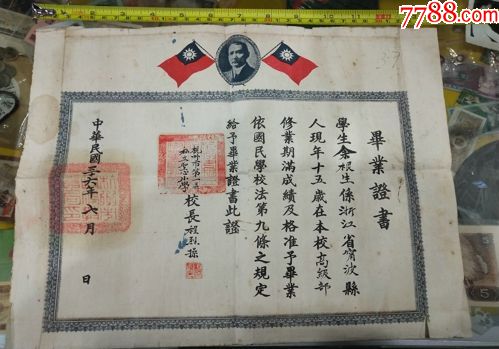 7788.com
37
畢業證書
學生余根生係浙江省寧波縣
人現年十五歲在本校高級部
修業期滿成績及格准予畢業
依國民學校法第九條之規定
給予畢業證書此證
校長程
中華民國三十六年 月 日